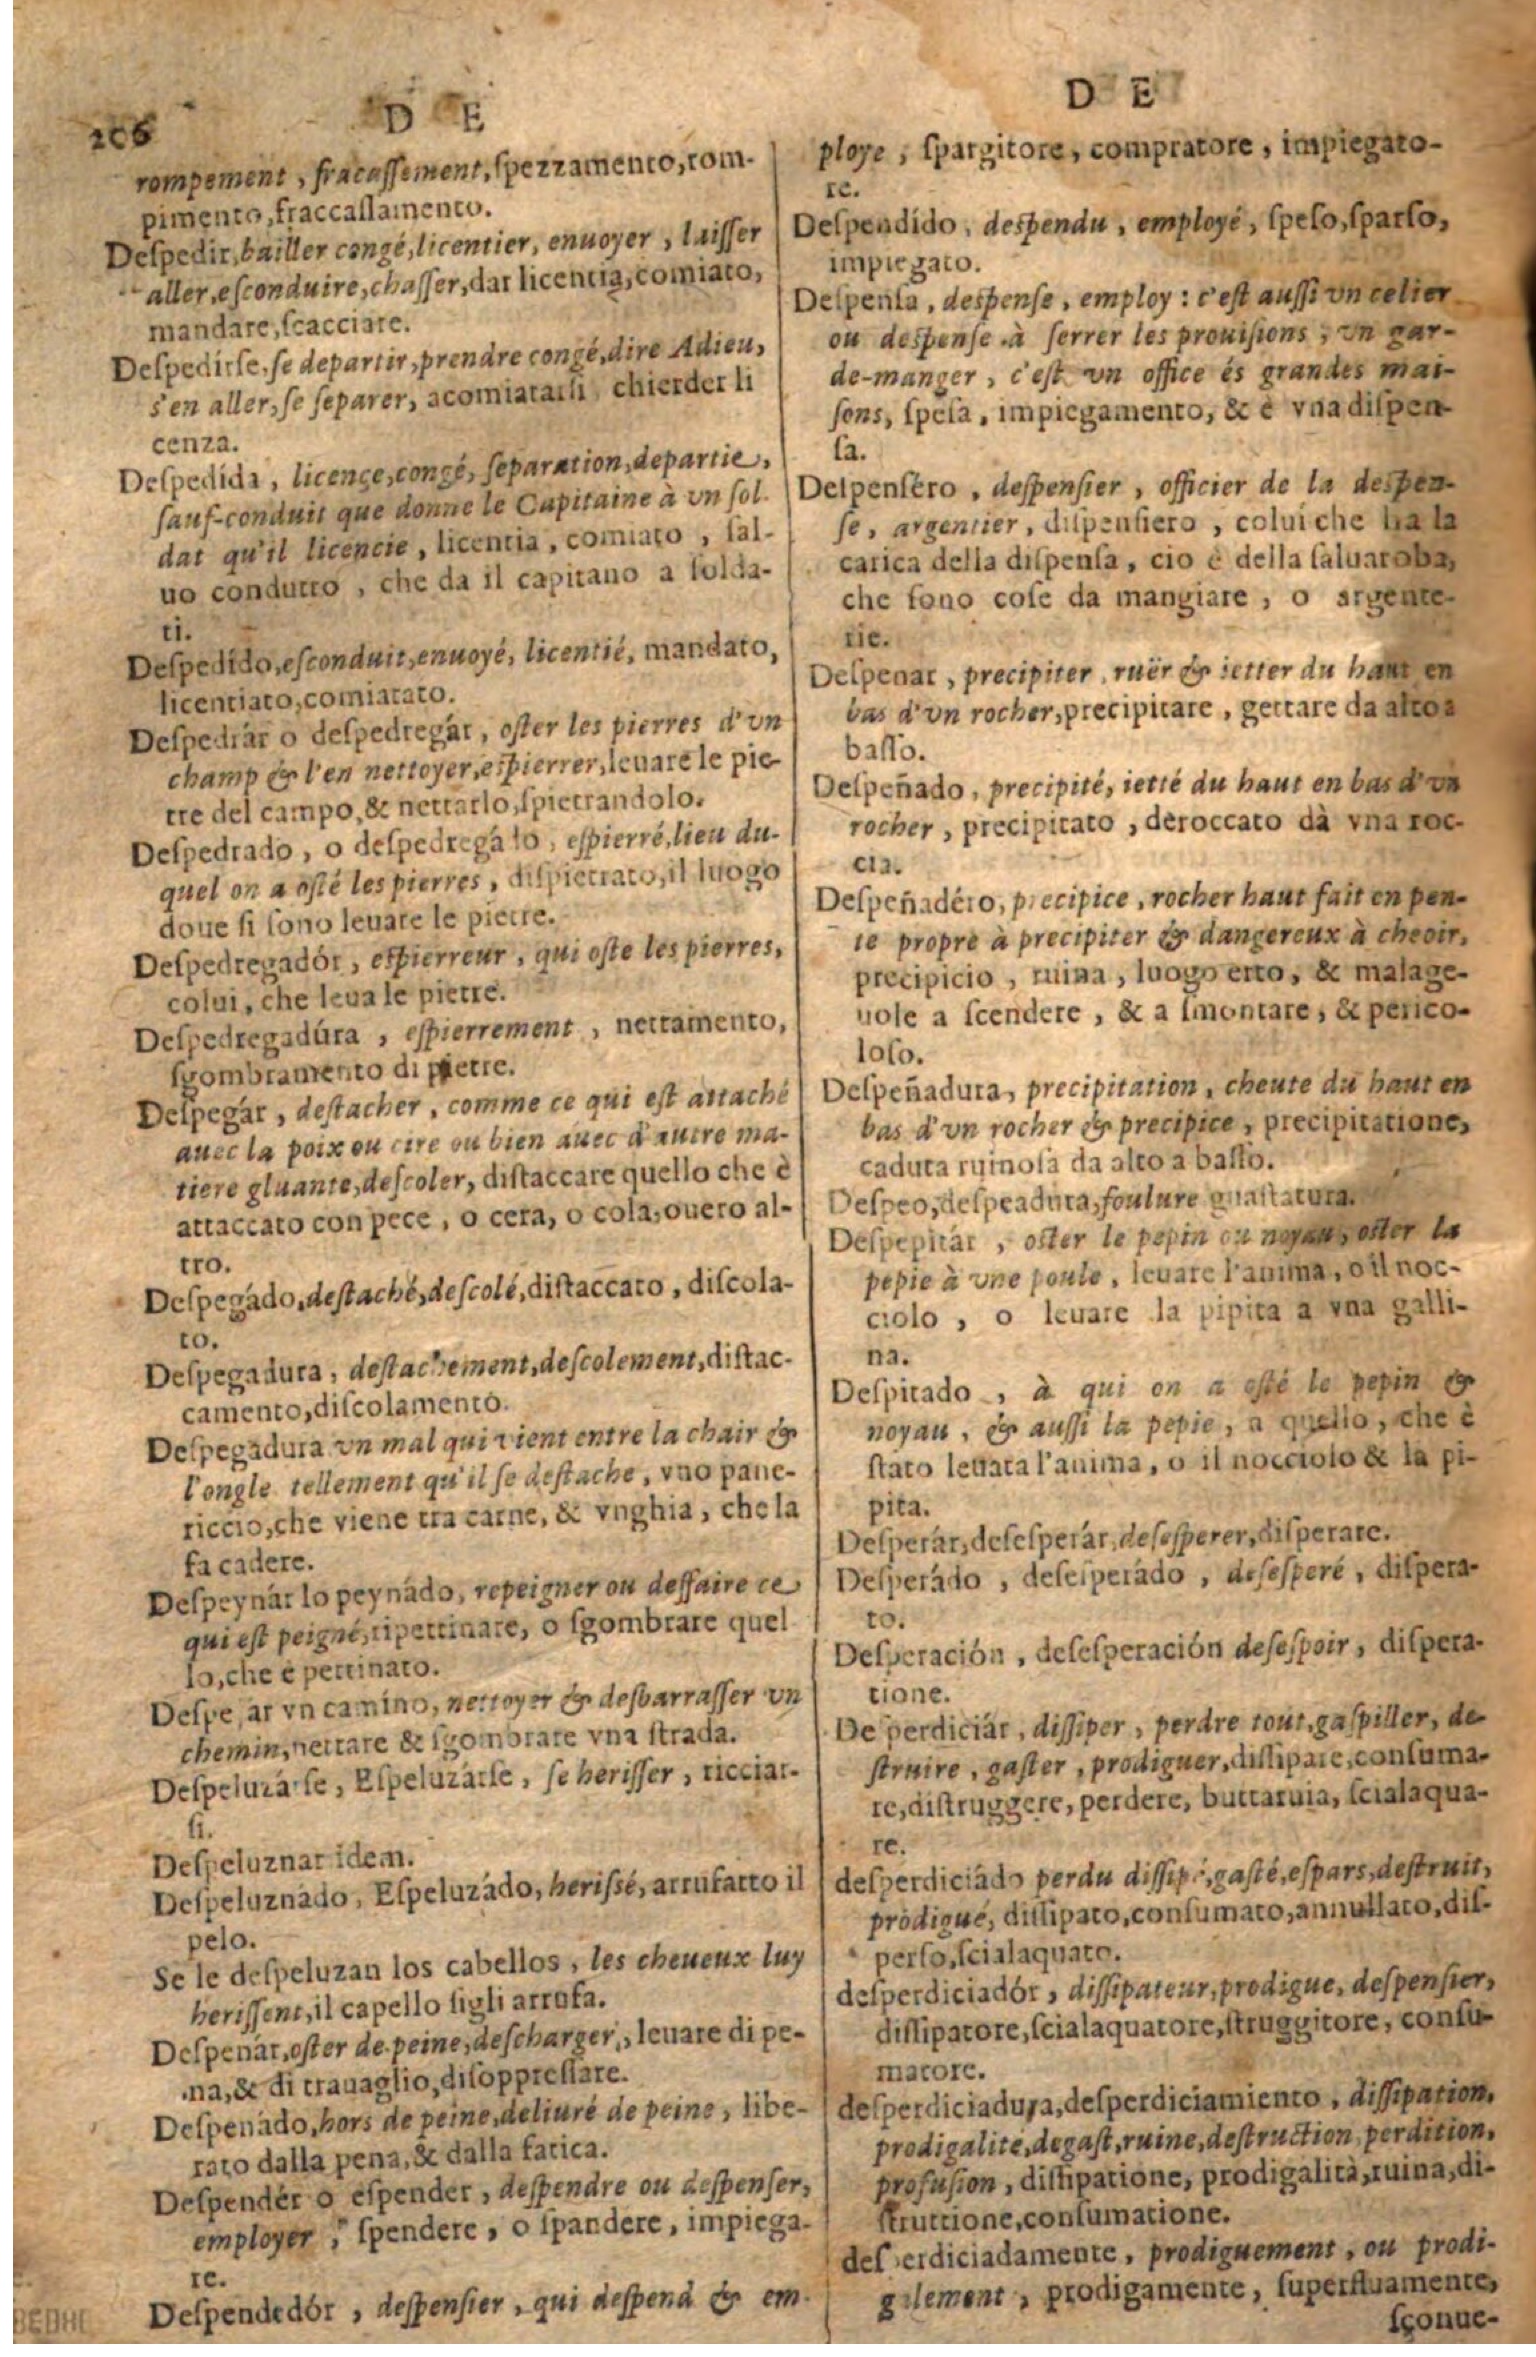 206
D E
rompement, fracassement, spezzamento, rom-
pimento, fraccassamento.
Despedir, bailler congé, licentier, enuoyer, laisser
aller, esconduire, chasser, dar licentia, comiato,
mandare, scacciare.
Despedirse, se departir, prendre congé, dire Adieu,
s'en aller, se separer, acomiatarsi, chierder li
cenza.
Despedida, licence, congé, separation, departie,
sauf-conduit que donne le Capitaine à vn sol-
dat qu'il licencie, licentia, comiato, sal-
uo condutto, che da il capitano a solda-
ti.
Despedido, esconduit, enuoyé, licentié, mandato,
licentiato, comiatato.
Despedrár o despedregár, oster les pierres d'vn
champ & l'en nettoyer, espierrer, leuare le pie-
tre del campo, & nettarlo, spietrandolo.
Despedrado, o despedregá lo, espierré, lieu du-
quel on a osté les pierres, dispietrato, il luogo
doue si sono leuate le pietre.
Despedregadór, espierreur, qui oste les pierres,
colui, che leua le pietre.
Despedregadúra, espierrement, nettamento,
sgombramento di pietre.
Despegár, destacher, comme ce qui est attaché
auec la poix ou cire ou bien auec d'autre ma-
tiere gluante, descoler, distaccare quello che è
attaccato con pece, o cera, o cola, ouero al-
tro.
Despegádo, destaché, descolé, distaccato, discola-
to.
Despegadura, destachement, descolement, distac-
camento, discolamento.
Despegadura vn mal qui vient entre la chair &
l'ongle tellement qu'il se destache, vno pane-
riccio, che viene tra carne, & vnghia, che la
fa cadere.
Despeynár lo peynádo, repeigner ou deffaire ce
qui est peigné, ripettinare, o sgombrare quel
lo, che è pettinato.
Despe ar vn camino, nettoyer & desbarrasser vn
chemin, nettare & sgombrare vna strada.
Despeluzá se, Espeluzárse, se herisser, ricciar-
si.
Despeluznar idem.
Despeluznádo, Espeluzádo, herissé, arrufatto il
pelo.
Se le despeluzan los cabellos, les cheueux luy
herissent, il capello sigli arrufa.
Despenár, oster de peine, descharger, leuare di pe-
na, & di trauaglio, disoppressare.
Despenádo, hors de peine, deliuré de peine, libe-
rato dalla pena, & dalla fatica.
Despendér o espender, despendre ou despenser,
employer, spendere, o spandere, impiega-
re.
Despendedór, despensier, qui despend & em-
D E
ploye, spargitore, compratore, impiegato-
re.
Despendido, despendu, employé, speso, sparso,
impiegato.
Despensa, despense, employ: c'est aussi vn celier
ou despense à serrer les prouisions, vn gar-
de-manger, c'est vn office és grandes mai-
sons, spesa, impiegamento, & è vna dispen-
sa.
Despenséro, despensier, officier de la despen-
se, argentier, dispensiero, colui che ha la
carica della dispensa, cio è della saluaroba,
che sono cose da mangiare, o argente-
rie.
Despenar, precipiter, ruër & ietter du haut en
bas d'vn rocher, precipitare, gettare da alto a
basso.
Despeñado, precipité, ietté du haut en bas d'vn
rocher, precipitato, deroccato dà vna roc-
cia.
Despeñadéro, precipice, rocher haut fait en pen-
te propre à precipiter & dangereux à cheoir,
precipicio, ruina, luogo erto, & malage-
uole a scendere, & a smontare, & perico-
loso.
Despeñadura, precipitation, cheute du haut en
bas d'vn rocher & precipice, precipitatione,
caduta ruinosa da alto a basso.
Despeo, despeadura, foulure guastatura.
Despepitár, oster le pepin ou noyau, oster la
pepie à vne poule, leuare l'anima, o il noc-
ciolo, o leuare la pipita a vna galli-
na.
Despitado, à qui on a osté le pepin &
noyau, & aussi la pepie, a quello, che è
stato leuata l'anima, o il nocciolo & la pi-
pita.
Desperár, desesperár, desesperer, disperare.
Desperádo, desesperádo, desesperé, dispera-
to.
Desperación, desesperación desespoir, dispera-
tione.
De perdiciár, dissiper, perdre tout, gaspiller, de-
struire, gaster, prodiguer, dissipare, consuma-
re, distruggere, perdere, buttaruia, scialaqua-
re.
desperdiciádo perdu dissipé, gasté, espars, destruit,
prodigué, dissipato, consumato, annullato, dis-
perso, scialaquato.
desperdiciadór, dissipateur, prodigue, despensier,
dissipatore, scialaquatore, struggitore, consu-
matore.
desperdiciadura, desperdiciamiento, dissipation,
prodigalité, degast, ruine, destruction, perdition,
profusion, dissipatione, prodigalità, ruina, di-
struttione, consumatione.
des erdiciadamente, prodiguement, ou prodi-
galement, prodigamente, superfluamente,
sçonue-